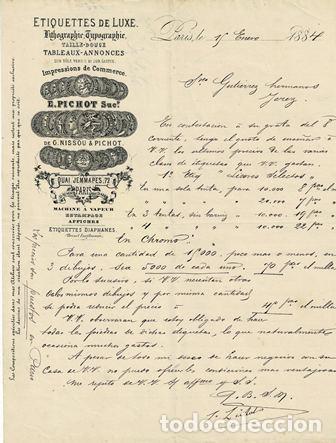 ETIQUETTES DE LUXE.
Lithographie, Typographie,
TAILLE-DOUCE
TABLEAUX-ANNONCES
SUR TÔLE VERNIS ET SUR CARTON.
Impressions de Commerce.
E. PICHOT Sucr.
DE G. NISSOU & PICHOT.
QUAI JEMMAPES, 72
PARIS
MACHINE À VAPEUR
ESTAMPAGE
AFFICHES
ETIQUETTES DIAPHANES
Paris, le 15 Enero 1884
Sres Gutierrez hermanos
Jerez
En contestación à su grata del 8
Corriente, tengo el gusto de enseñar à
V.V. los ultimos precios de las varias
clases de etiquetas que V.V. gastan.
1º Etiq "Licores Selectos"
En una sola tinta, para 10.000 8 fcs el mill
20.000 7
En 3 tintas, sin barniz 10.000 19
4 10.000 22
En Chromo
Para una cantidad de 15.000, poco mas o menos, en
3 dibujos. Sea 5000 de cada uno. 70 fcs el mille
Por lo sucesivo, si V.V. necesitan otras
de los mismos dibujos y por misma cantidad
se podra reducir el precio à 45 fcs el mille
V.V. observaran que estoy obligado de hacer
todas las piedras de dichas etiquetas, lo que naturalmente
ocasiona muchos gastos.
A pesar de todo mi deseo de hacer negocios con su
Casa de V.V. no puedo ofrecerles condiciones mas ventajosas
Me repito de V.V. Af affmo y S.S.
Q. B. S. M.
E. Pichot
Valores los puestos en Paris
todocoleccion